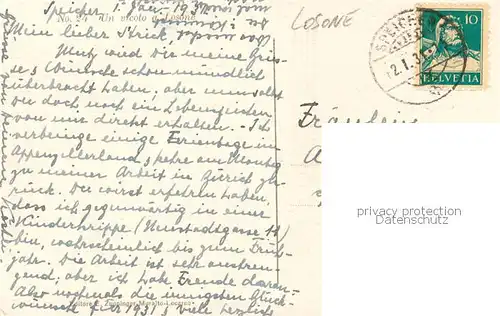 No. 24 Un vicolo di Losone
LOSONE
Speicher, 1. Jan. 1931
Mein lieber
wird dir meine Grüs-
se & Wünsche schon mündlich
überbracht haben, aber nun sollst
du doch noch ein Lebenszeichen
von uns direkt erhalten. - Ich
verbringe einige Ferientage im
Appenzellerland, kehre am Montag
zu meiner Arbeit in Zürich zu-
rück. Du wirst erfahren haben,
dass ich gegenwärtig in einer
Kinderkrippe (Neustadtgasse 11)
bin, wahrscheinlich bis zum Früh-
jahr. Die Arbeit ist sehr anstren-
gend, aber ich habe Freude daran.
Also nochmals die innigsten Glück-
wünsche für 1931 & viele herzliche
Grüsse von
10
HELVETIA
SPEICHER
2.1.3
Fräulein
privacy protection
www.oldthing.com